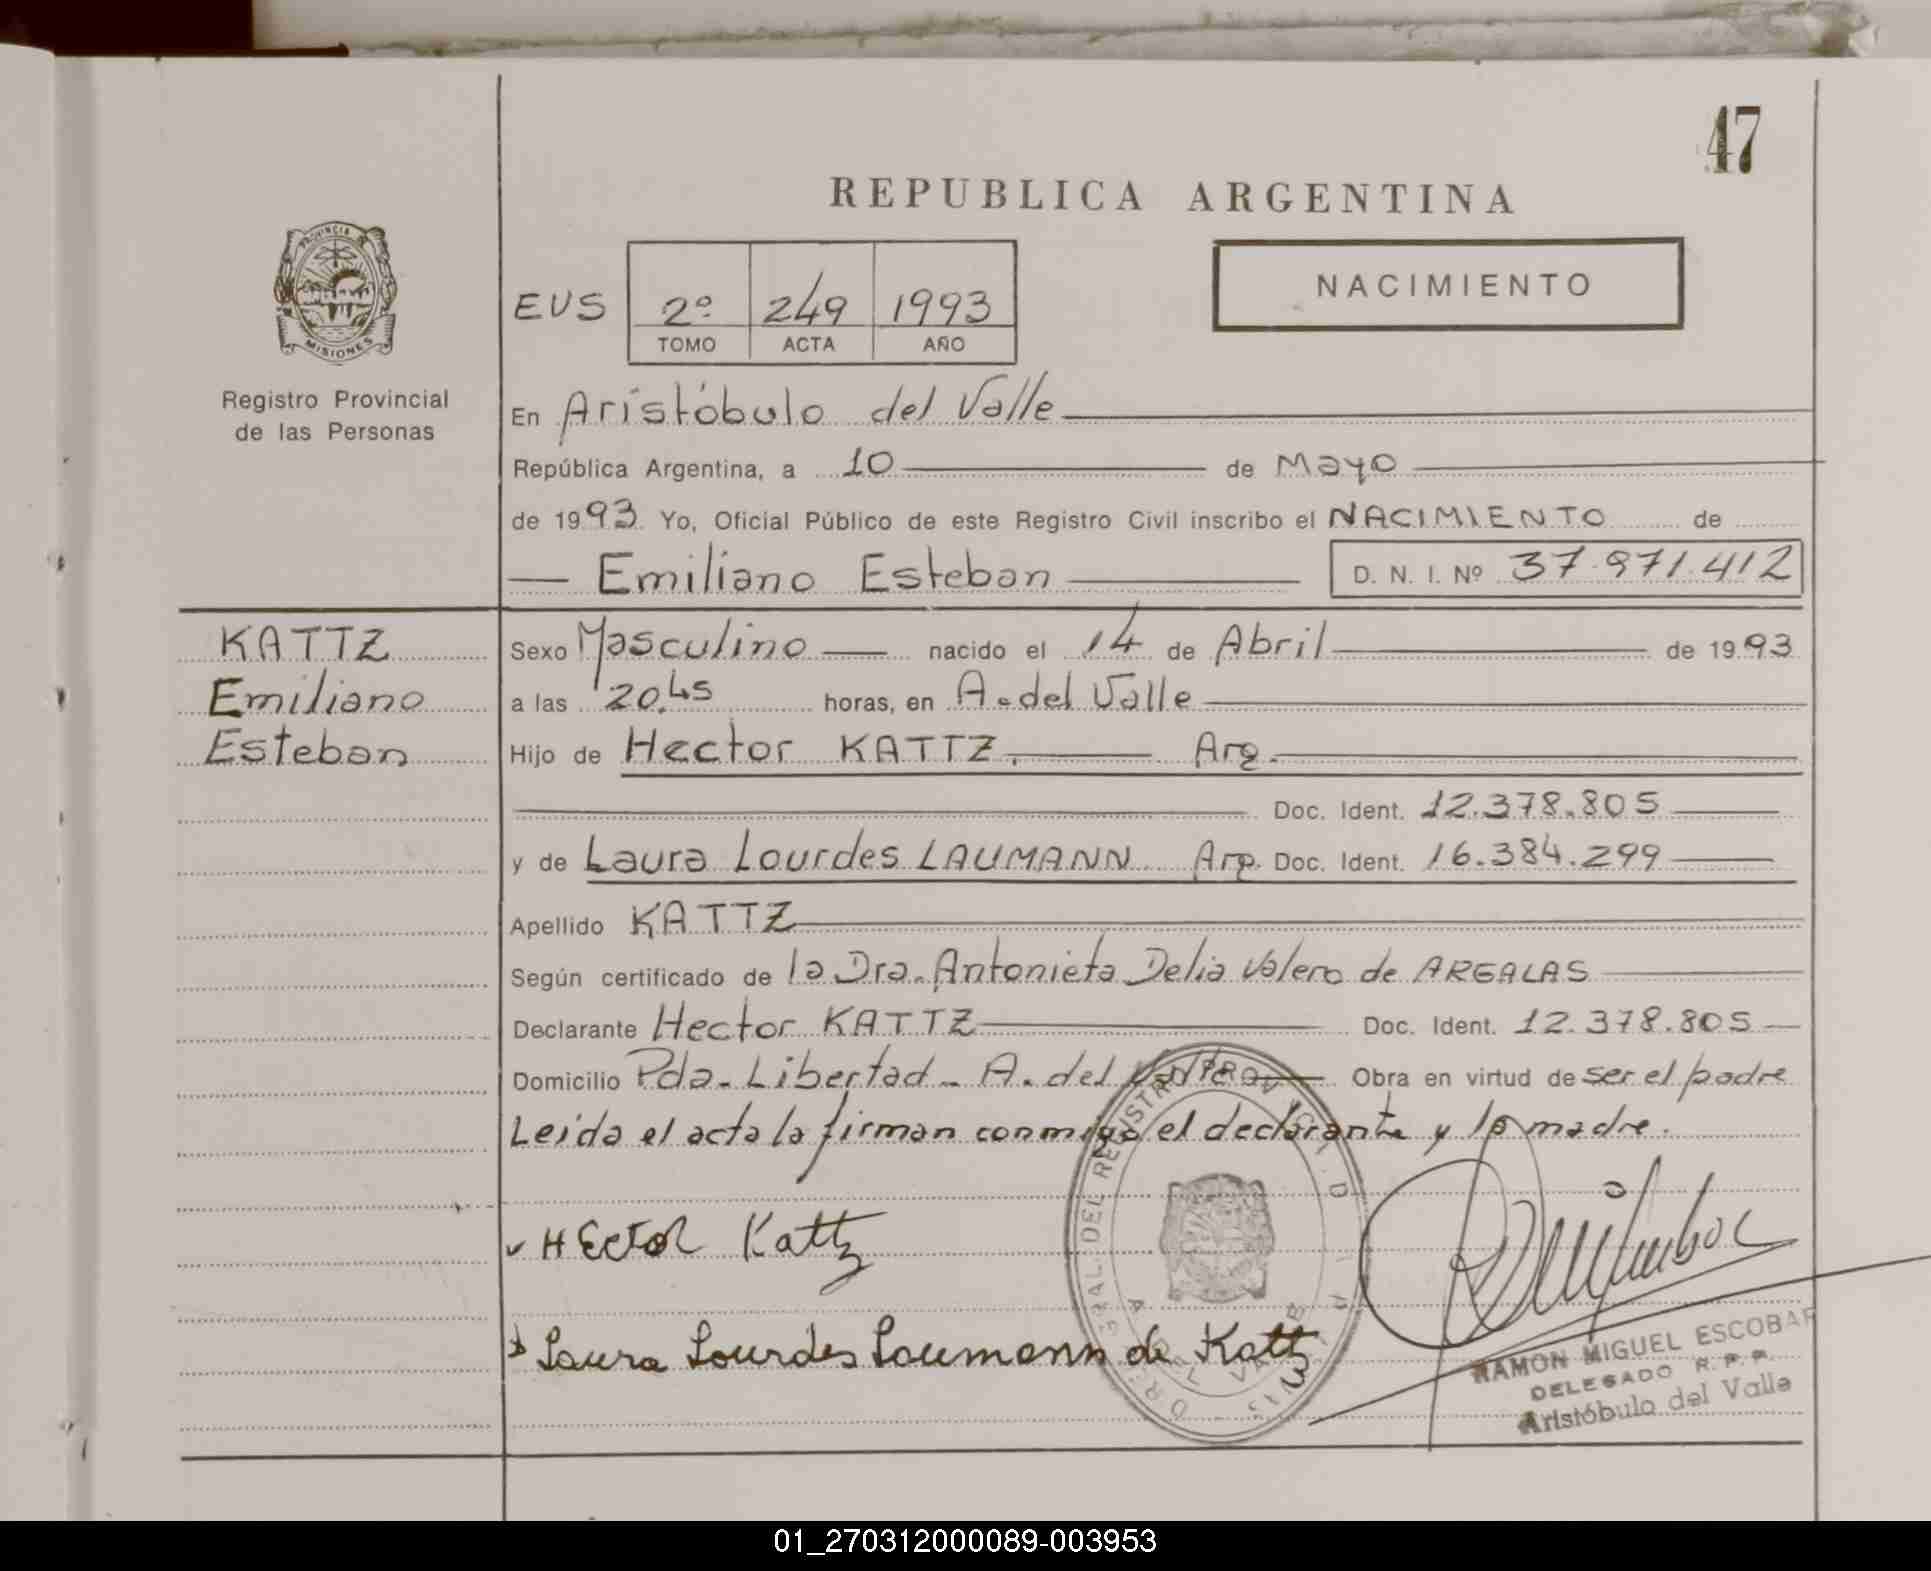 47
REPUBLICA ARGENTINA
PROVINCIA DE
MISIONES
Registro Provincial
de las Personas
EUS 2º 249 1993
TOMO ACTA AÑO
NACIMIENTO
En Aristóbulo del Valle
República Argentina, a 10 de Mayo
de 1993 Yo, Oficial Público de este Registro Civil inscribo el NACIMIENTO de
Emiliano Esteban D. N. I. Nº 37.971.412
KATTZ
Emiliano
Esteban
Sexo Masculino nacido el 14 de Abril de 1993
a las 20.45 horas, en A. del Valle
Hijo de Hector KATTZ. Arg.
Doc. Ident. 12.378.805
y de Laura Lourdes LAUMANN Arg. Doc. Ident. 16.384.299
Apellido KATTZ
Según certificado de la Dra. Antonieta Delia Valero de ARGALAS
Declarante Hector KATTZ Doc. Ident. 12.378.805
Domicilio Pda. Libertad - A. del Valle Obra en virtud de ser el padre
Leida el acta la firman conmigo el declarante y la madre.
Hector Kattz
Laura Lourdes Laumann de Kattz
RAMON MIGUEL ESCOBAR
DELEGADO R. P. P.
Aristóbulo del Valle
01_270312000089-003953